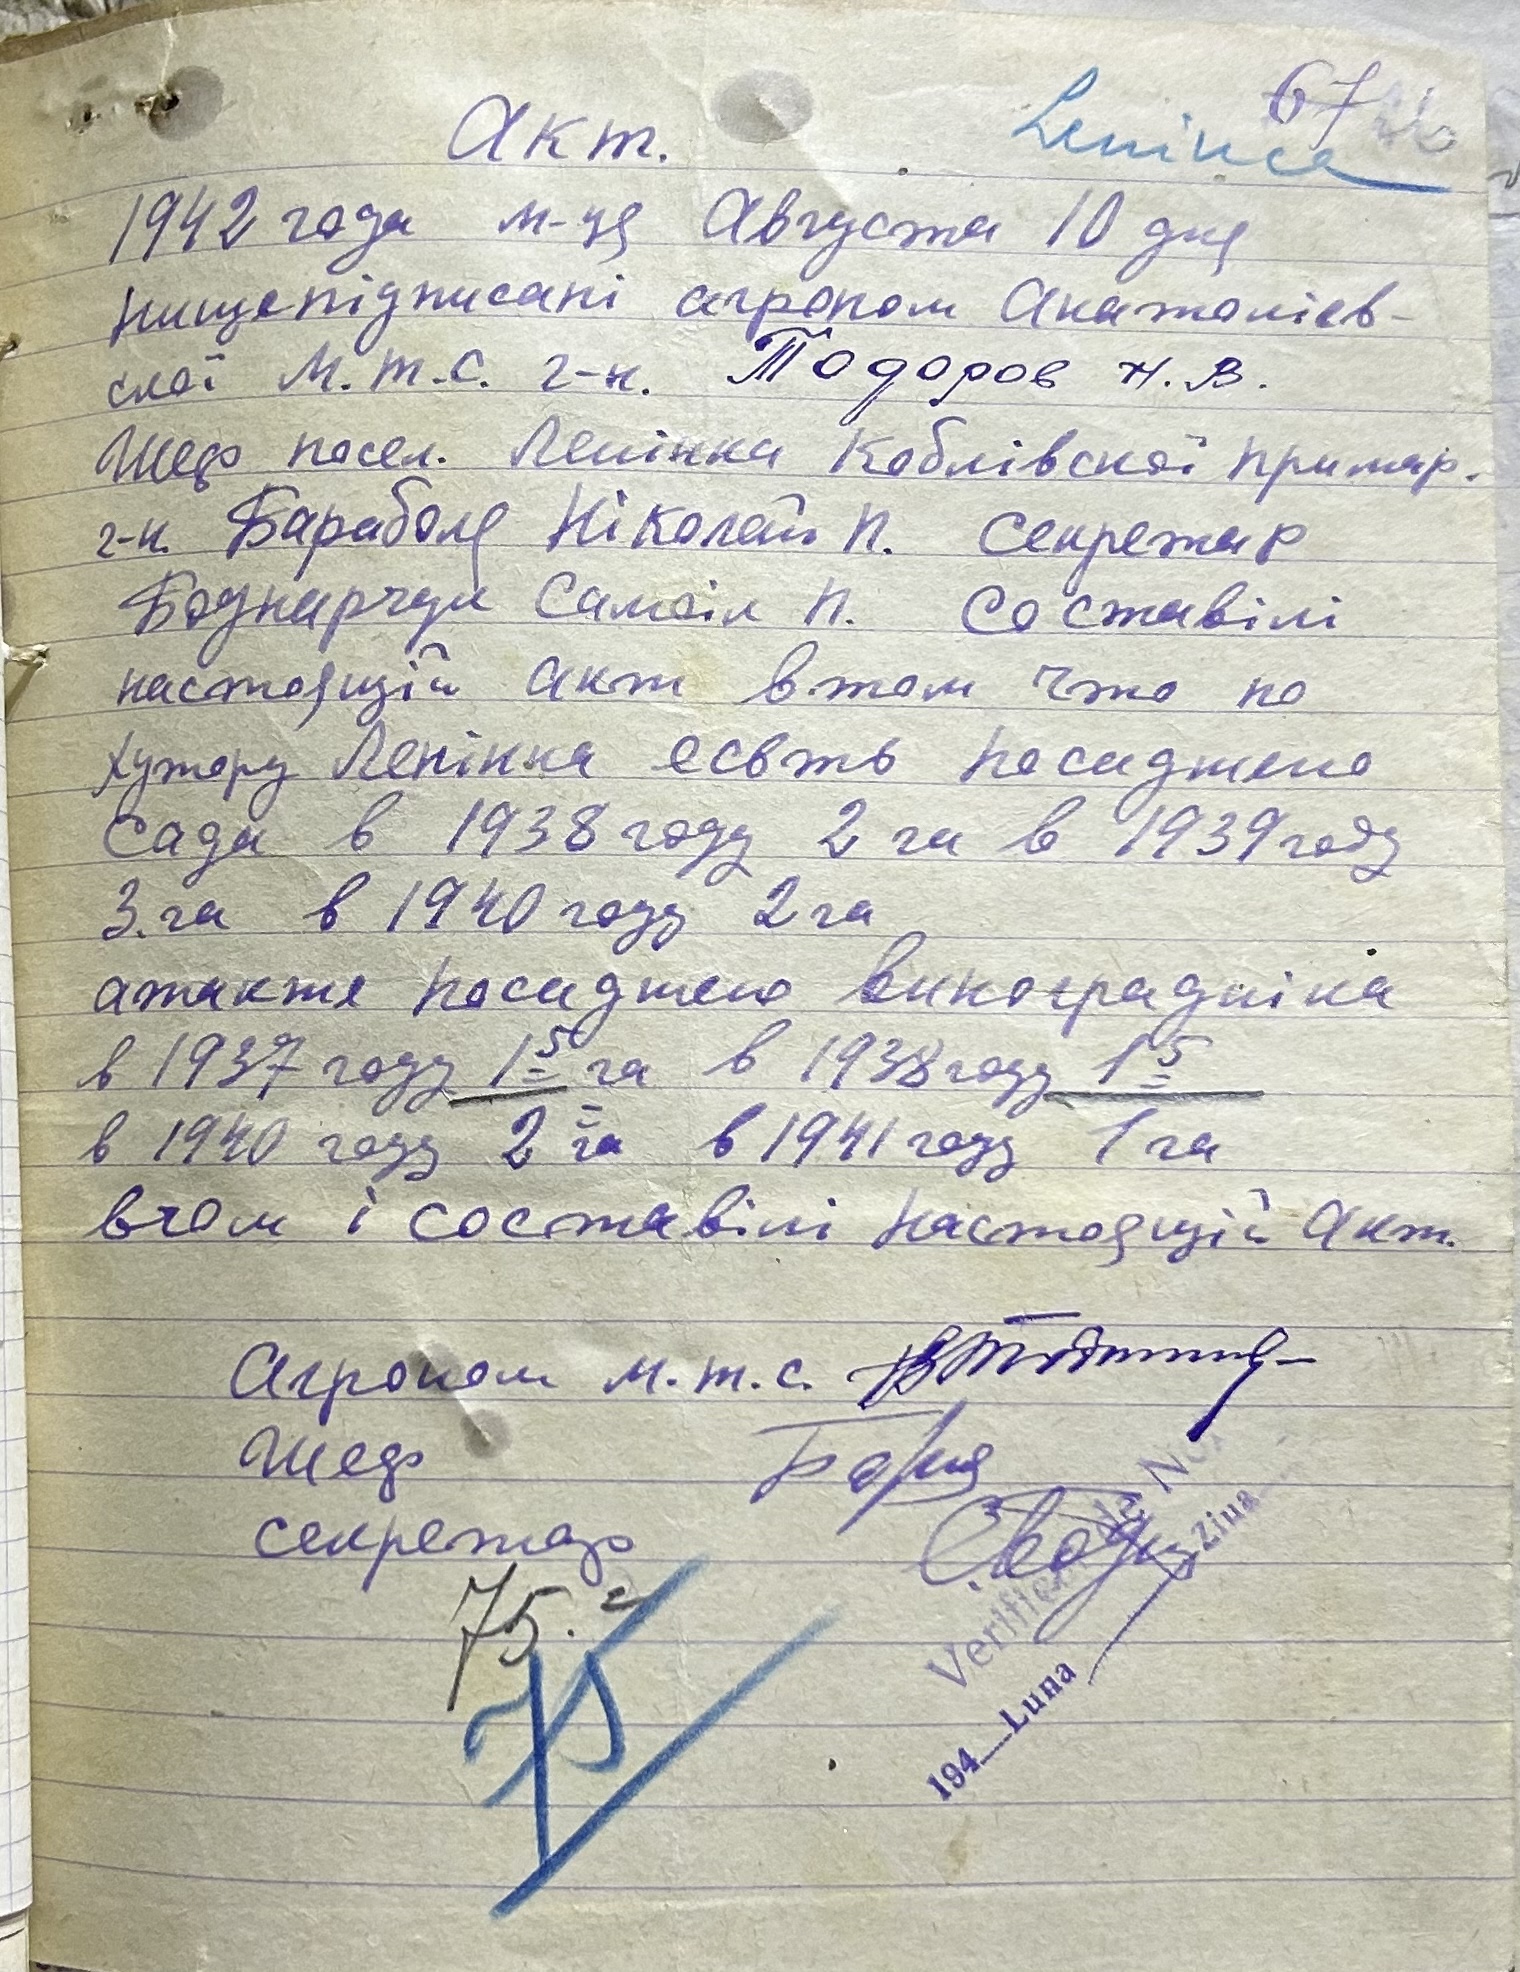 67
Leninca
Акт.
1942 года м-ця Августа 10 дня
нищепідписані агроном Анатолієв-
скої М.т.с. г-н. Тодоров Н.В.
Шеф посел. Ленінка Коблівской примар.
г-н. Бараболя Ніколай П. Секретар
Боднарчук Самоіл П. Составілі
настоящій акт втом что по
хутору Ленінка есвть посаджено
Сада в 1938 году 2 га в 1939 году
3.га в 1940 году 2 га
атакже посаджено виноградніка
в 1937 году 1 5 га в 1938 году 1 5
в 1940 году 2 га в 1941 году 1 га
вчом і составілі настоящій Акт.
Агроном м.т.с.
Шеф
секретар
Verificat de No
194__Luna Ziua
75.
75